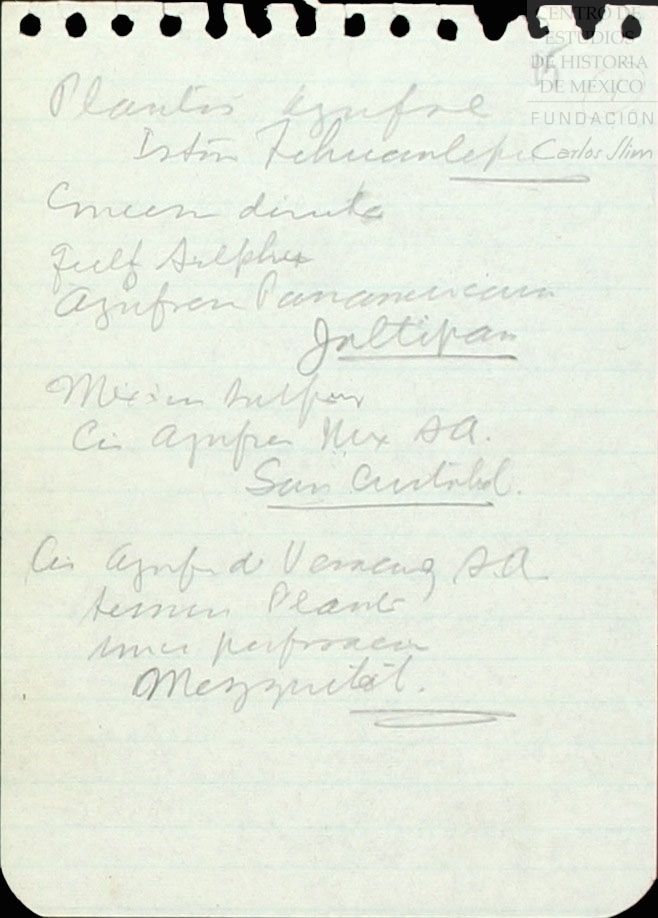 CENTRO DE
ESTUDIOS
DE HISTORIA
DE MÉXICO
FUNDACIÓN
Carlos Slim
15
Plantas Azufre
Istmo Tehuantepec
directa
Gulf Sulphur
Azufrera Panamericana
Jaltipan
Mexican Sulphur
Cia Azufre Mex SA.
San Cristobal.
Cia Azufre de Veracruz SA
Planta
perforacion
Mezquital.